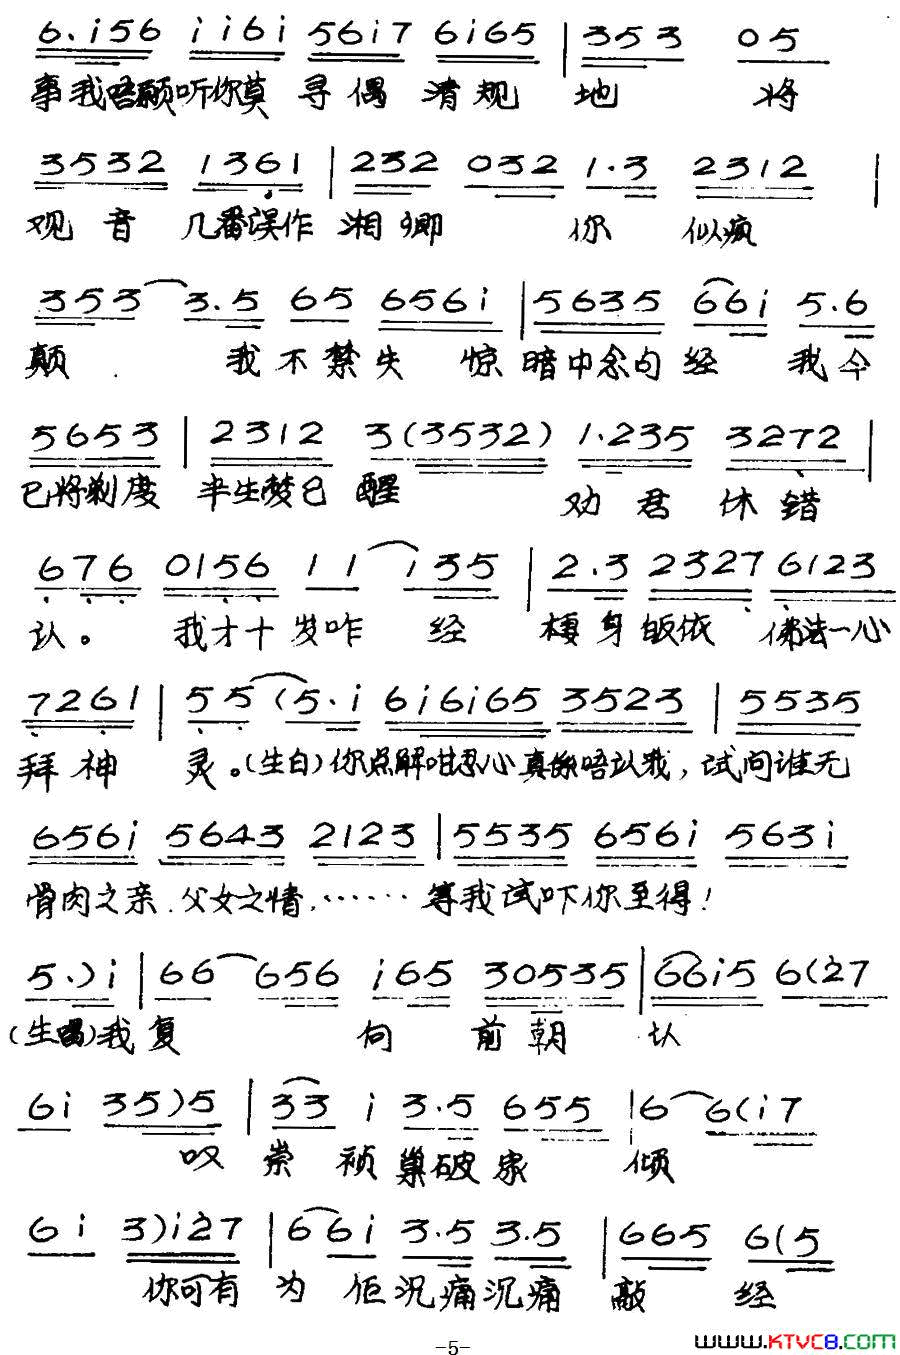 6.i56 ii6i 56i7 6i65 | 353 05
事我唔願听你莫 寻偶 清规 地 将
3532 1361 | 232 032 1.3 2312 |
观音 几番误作湘卿 你 似疯
353 3.5 65 656i | 5635 66i 5.6
颠. 我不禁失 惊暗中念句经 我今
5653 | 2312 3(3532) 1.235 3272 |
已将剃度 半生梦已醒 劝君休错
676 0156 11 135 | 2.3 2327 6123
认。 我才十岁咋 经 栖身皈依 佛法一心
7261 | 55 (5.i 6i6i65 3523 | 5535
拜神 灵。(生白)你点解咁忍心真係唔认我，试问谁无
656i 5643 2123 | 5535 656i 563i
骨肉之亲.父女之情，⋯⋯等我试吓你至得！
5.)i | 66 656 i65 30535 | 66i5 6(27
(生唱)我复 向 前朝 认
6i 35)5 | 33 i 3.5 655 | 6 6(i7
叹 崇祯巢破家 倾
6i 3)i27 | 66i 3.5 3.5 | 665 6(5
你可有 为 佢沉痛沉痛 敲 经
-5-
WWW.KTVC8.COM